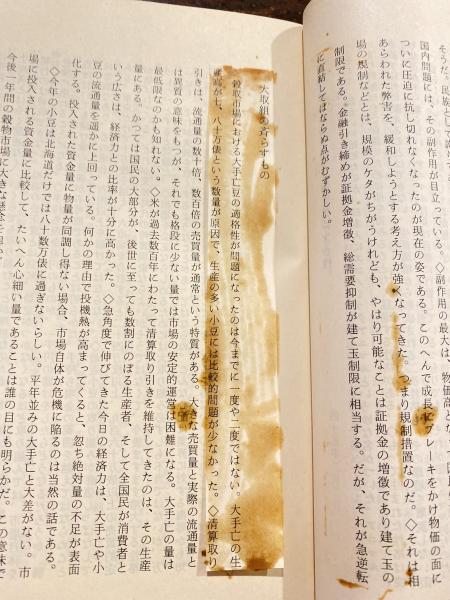 そうだ。民族
国内問題には、その副作用が目立っている。◇副作用の最大は、物価高と
ついに圧迫に抗し切れなくなったのが現在の姿である。このへんで成長にブレーキをかけ物価の面に
あらわれた弊害を、緩和しようとする考え方が強くなってきた。つまり規制措置なのだ。◇それは相
場の規制などとは、規模のケタがちがうけれども、やはり可能なことは証拠金の増徴であり建て玉の
制限である。金融引き締めが証拠金増徴、総需要抑制が建て玉制限に相当する。だが、それが急逆転
に直結してはならぬ点がむずかしい。
大取組の齎らすもの
穀取市場における大手亡豆の適格性が問題になったのは今までに一度や二度ではない。大手亡の生
産高が七、八十万俵という数量が原因で、生産の多い小豆には比較的問題が少なかった。◇清算取り
引きは、流通量の数十倍、数百倍の売買量が通常という特質がある。大きな売買量と実際の流通量と
は異質の意味をもつが、それでも格段に少ない量では市場の安定的運営は困難になる。大手亡の量は
最低限なのかも知れない。◇米が過去数百年にわたって清算取り引きを維持してきたのは、その生産
量にある。かつては国民の大部分が、後世に至っても数割にのぼる生産者、そして全国民が消費者と
いう広さは、経済力との比率が十分に高かった。◇急角度で伸びてきた今日の経済力は、大手亡や小
豆の流通量を遥かに上回っている。何かの理由で投機熱が高まってくると、忽ち絶対量の不足が表面
化する。投入された資金量に物量が同調し得ない場合、市場自体が危機に陥るのは当然の話である。
◇今年の小豆は北海道だけでは八十数万俵に過ぎないらしい。平年並みの大手亡と大差がない。市
場に投入される資金量に比較して、たいへん心細い量であることは誰の目にも明らかだ。この意味で
今後一年間の穀物市場に大きな懸念を